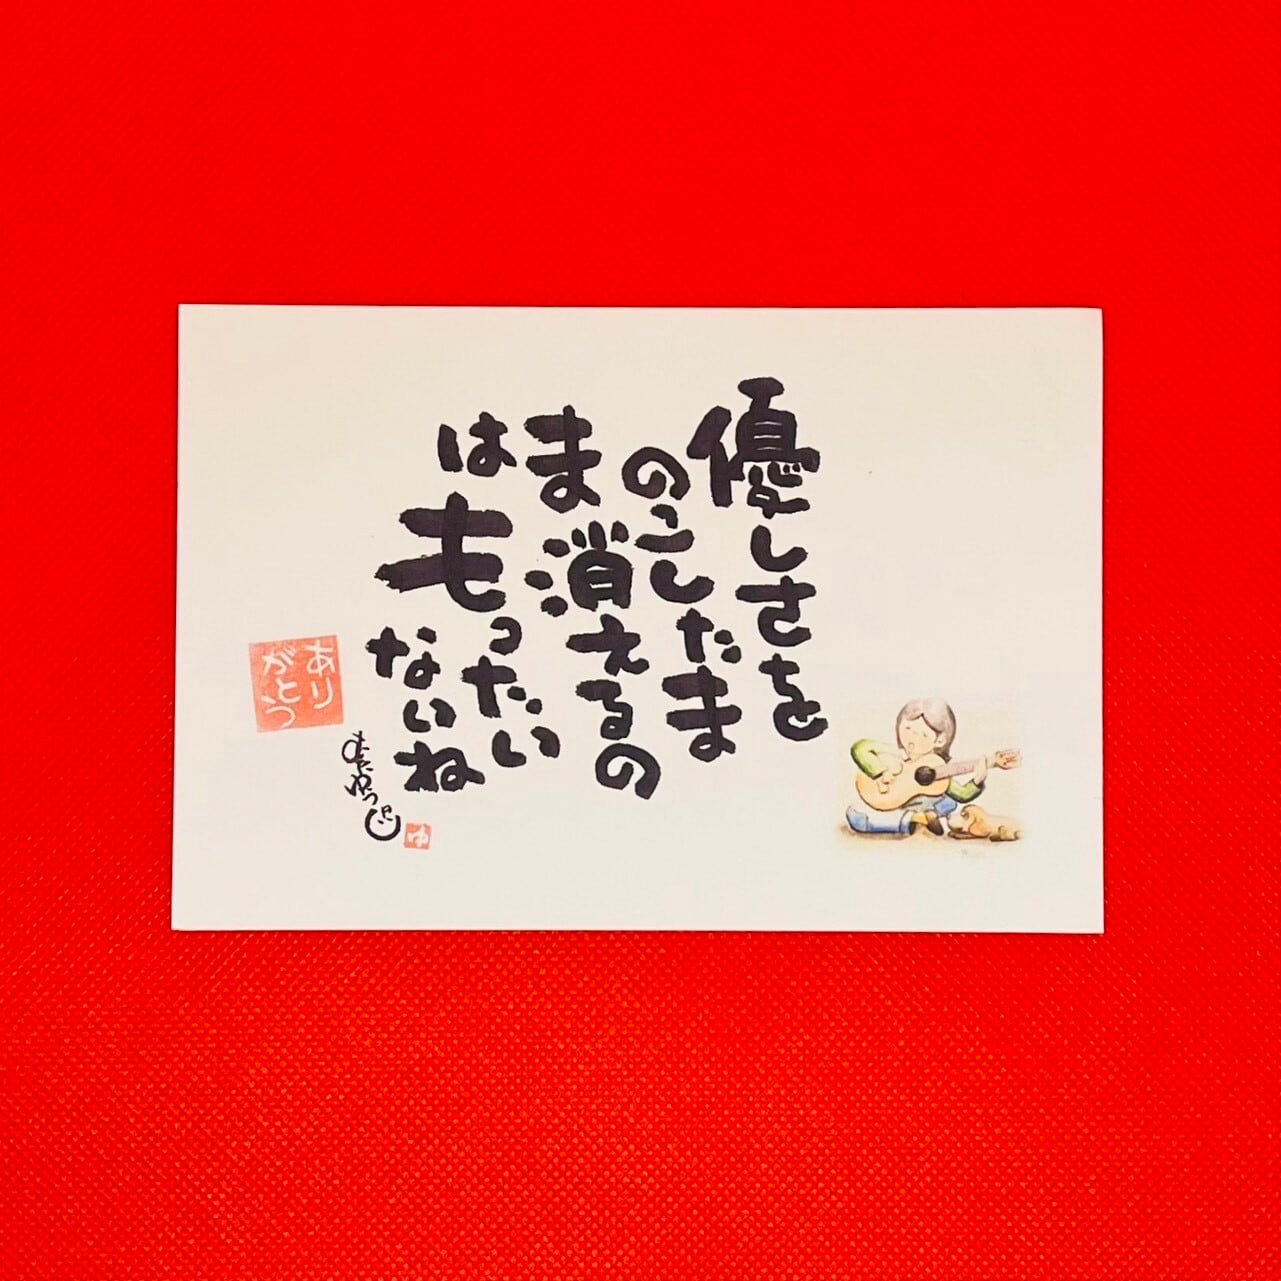 優しさを
のこしたま
ま消えるの
はもったい
ないね
ありがとう
ゆ